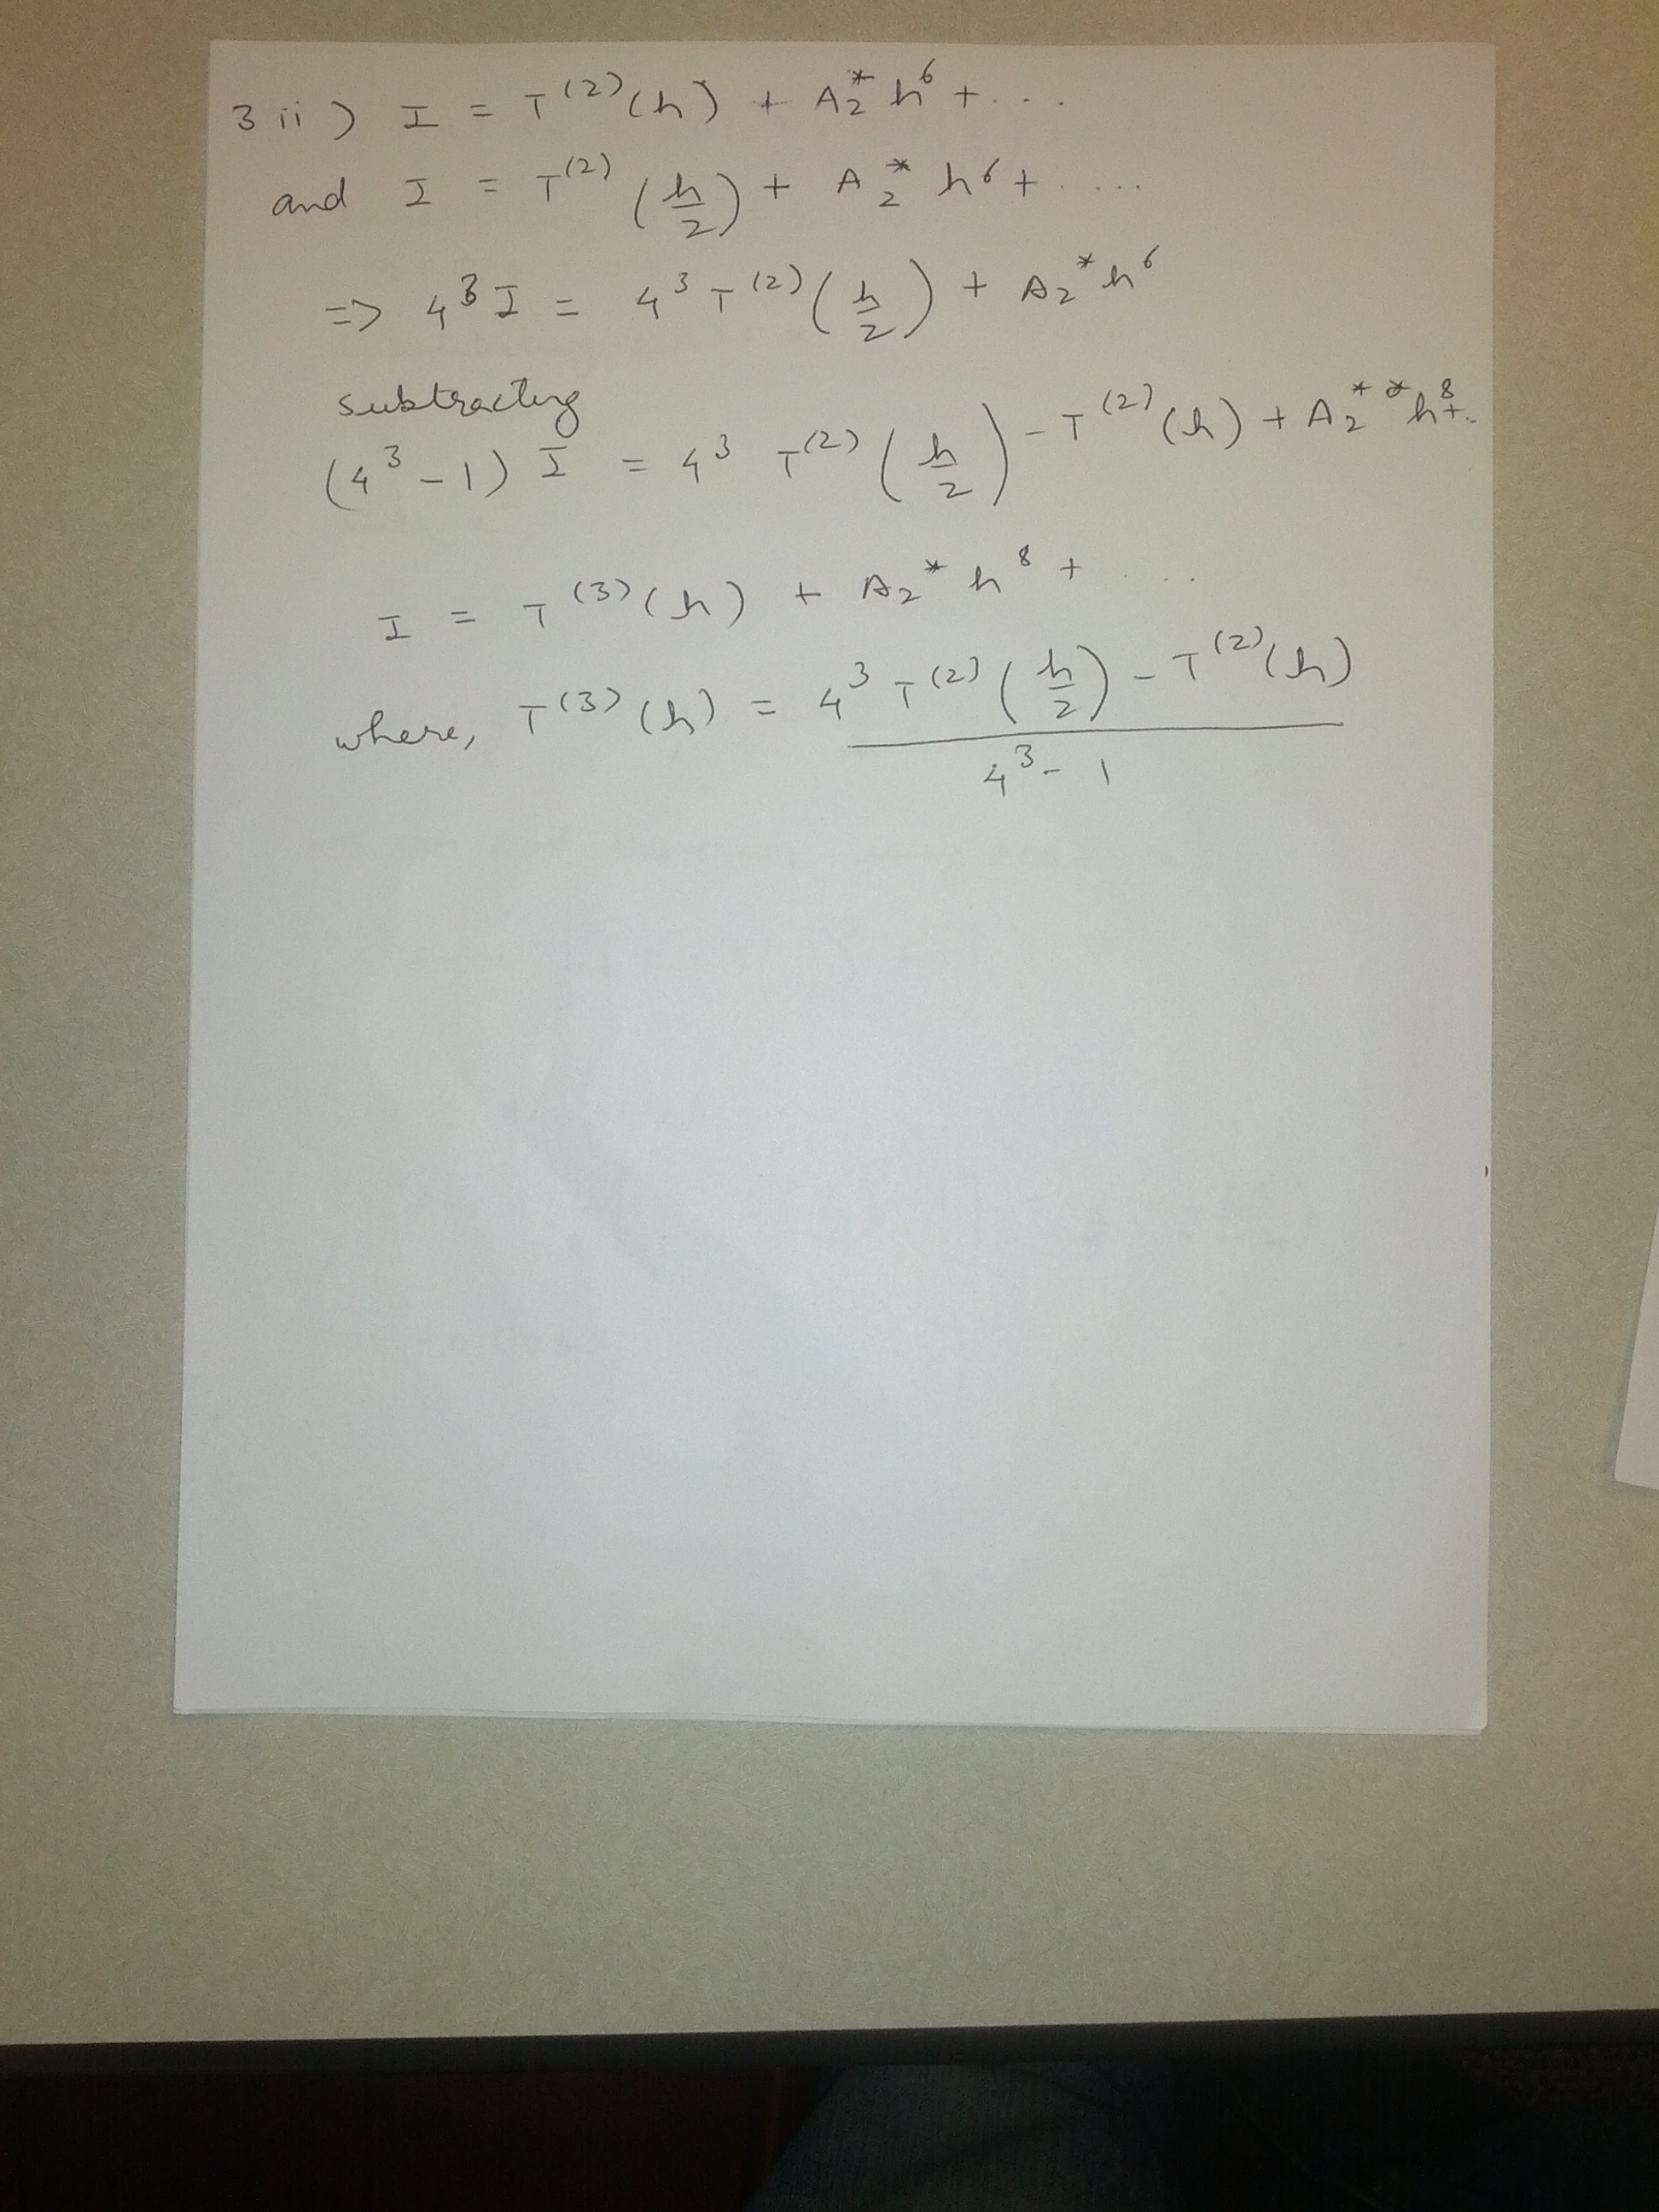 3 ii) I = T^(2)(h) + A_2^* h^6 + ...
and I = T^(2) (h/2) + A_2^* h^6 + ....
=> 4^3 I = 4^3 T^(2) (h/2) + A_2^* h^6
subtracting
(4^3 - 1) I = 4^3 T^(2) (h/2) - T^(2) (h) + A_2^** h^8 + ..
I = T^(3) (h) + A_2^* h^8 + ...
where, T^(3) (h) = 4^3 T^(2) (h/2) - T^(2) (h)
4^3 - 1